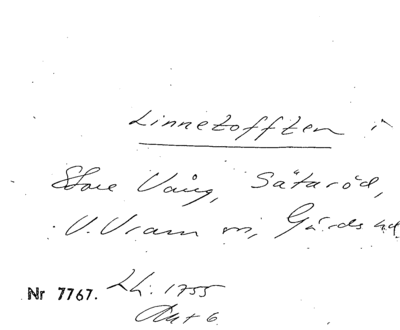 Linnetofften i
Store Vång, Sätaröd,
V. Vram sn, Gärds hd
Nr 7767. Lh. 1755
Akt 6